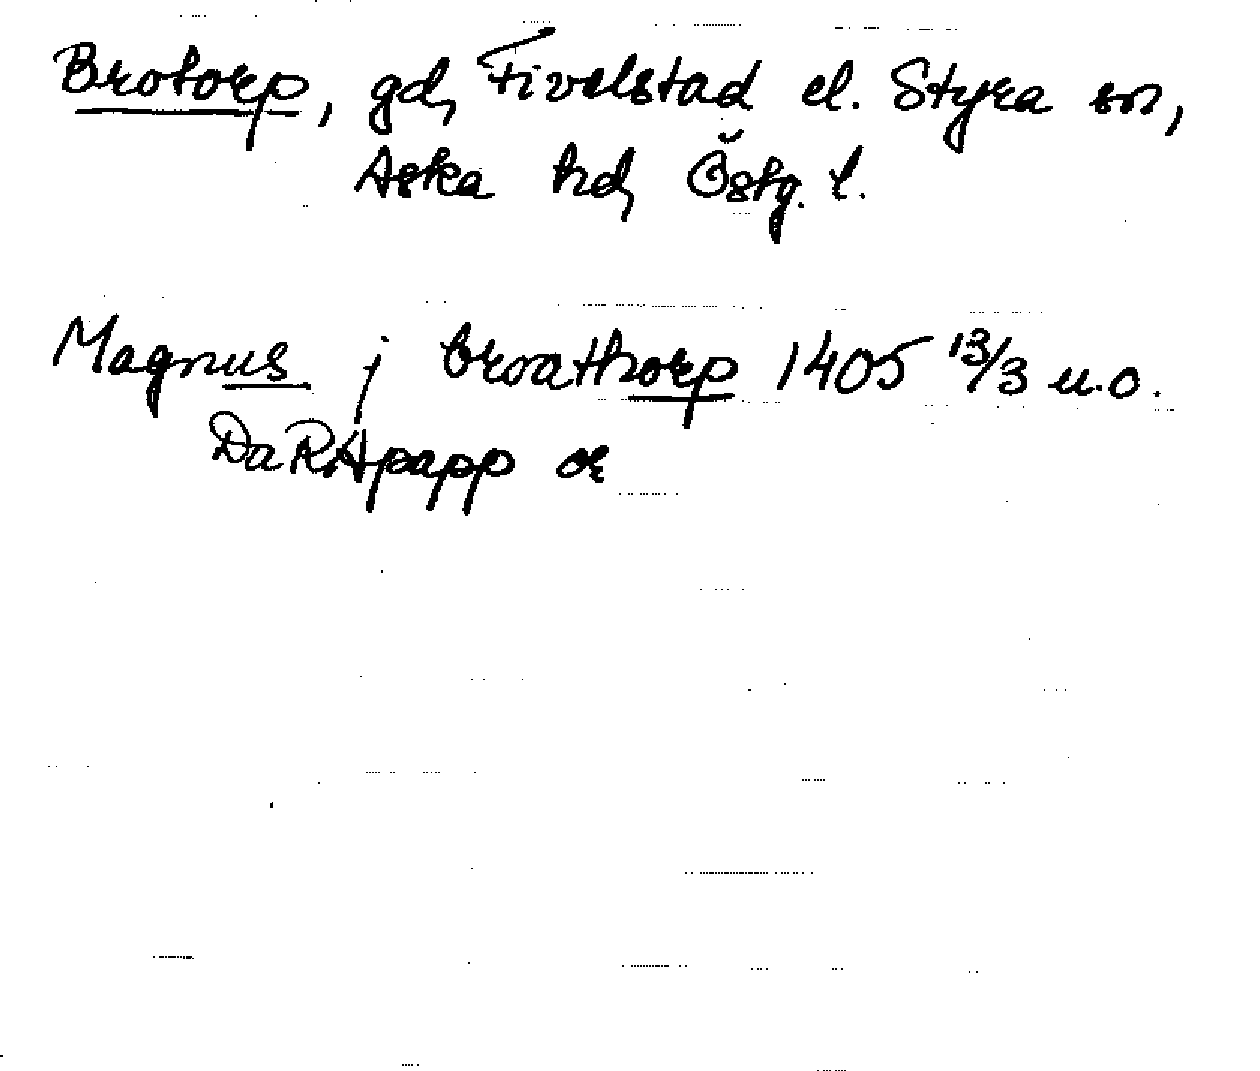 Brotorp, gd, Fivelstad el. Styra sn,
Aska hd, Östg. l.
Magnus j broathorp 1405 13/3 u.o.
Da RApapp or